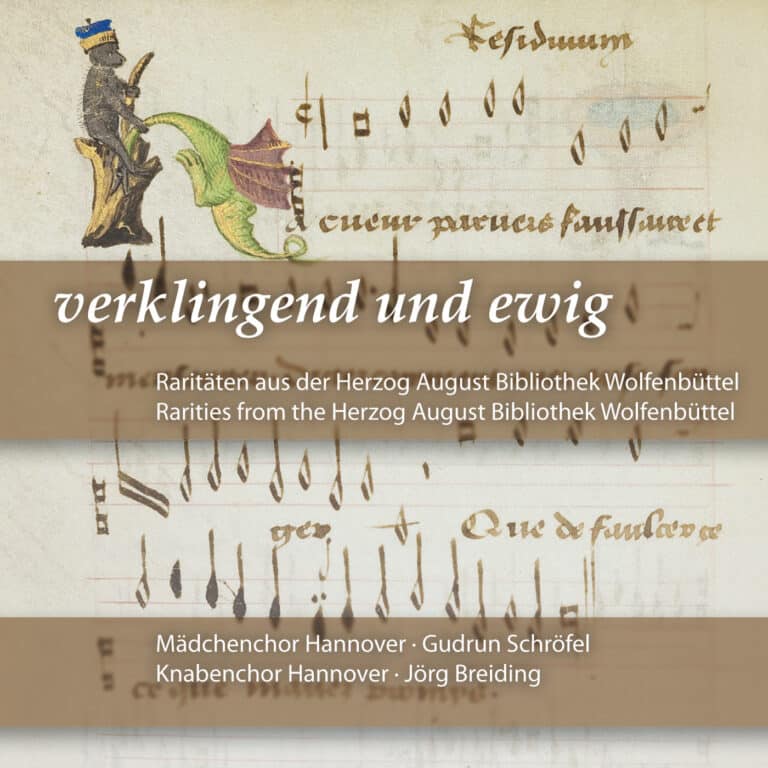 Residuum
a cueur parvers faulsaire et
verklingend und ewig
Raritäten aus der Herzog August Bibliothek Wolfenbüttel
Rarities from the Herzog August Bibliothek Wolfenbüttel
ger Que de faulcer ce
Mädchenchor Hannover · Gudrun Schröfel
Knabenchor Hannover · Jörg Breiding
ce que